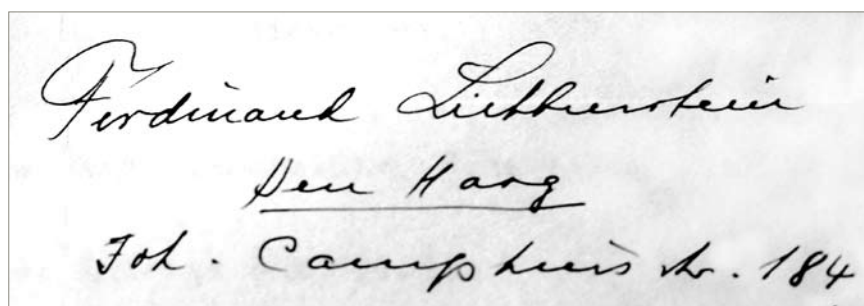 Ferdinand Lichtenstein
Den Haag
Joh. Camphuis str. 184